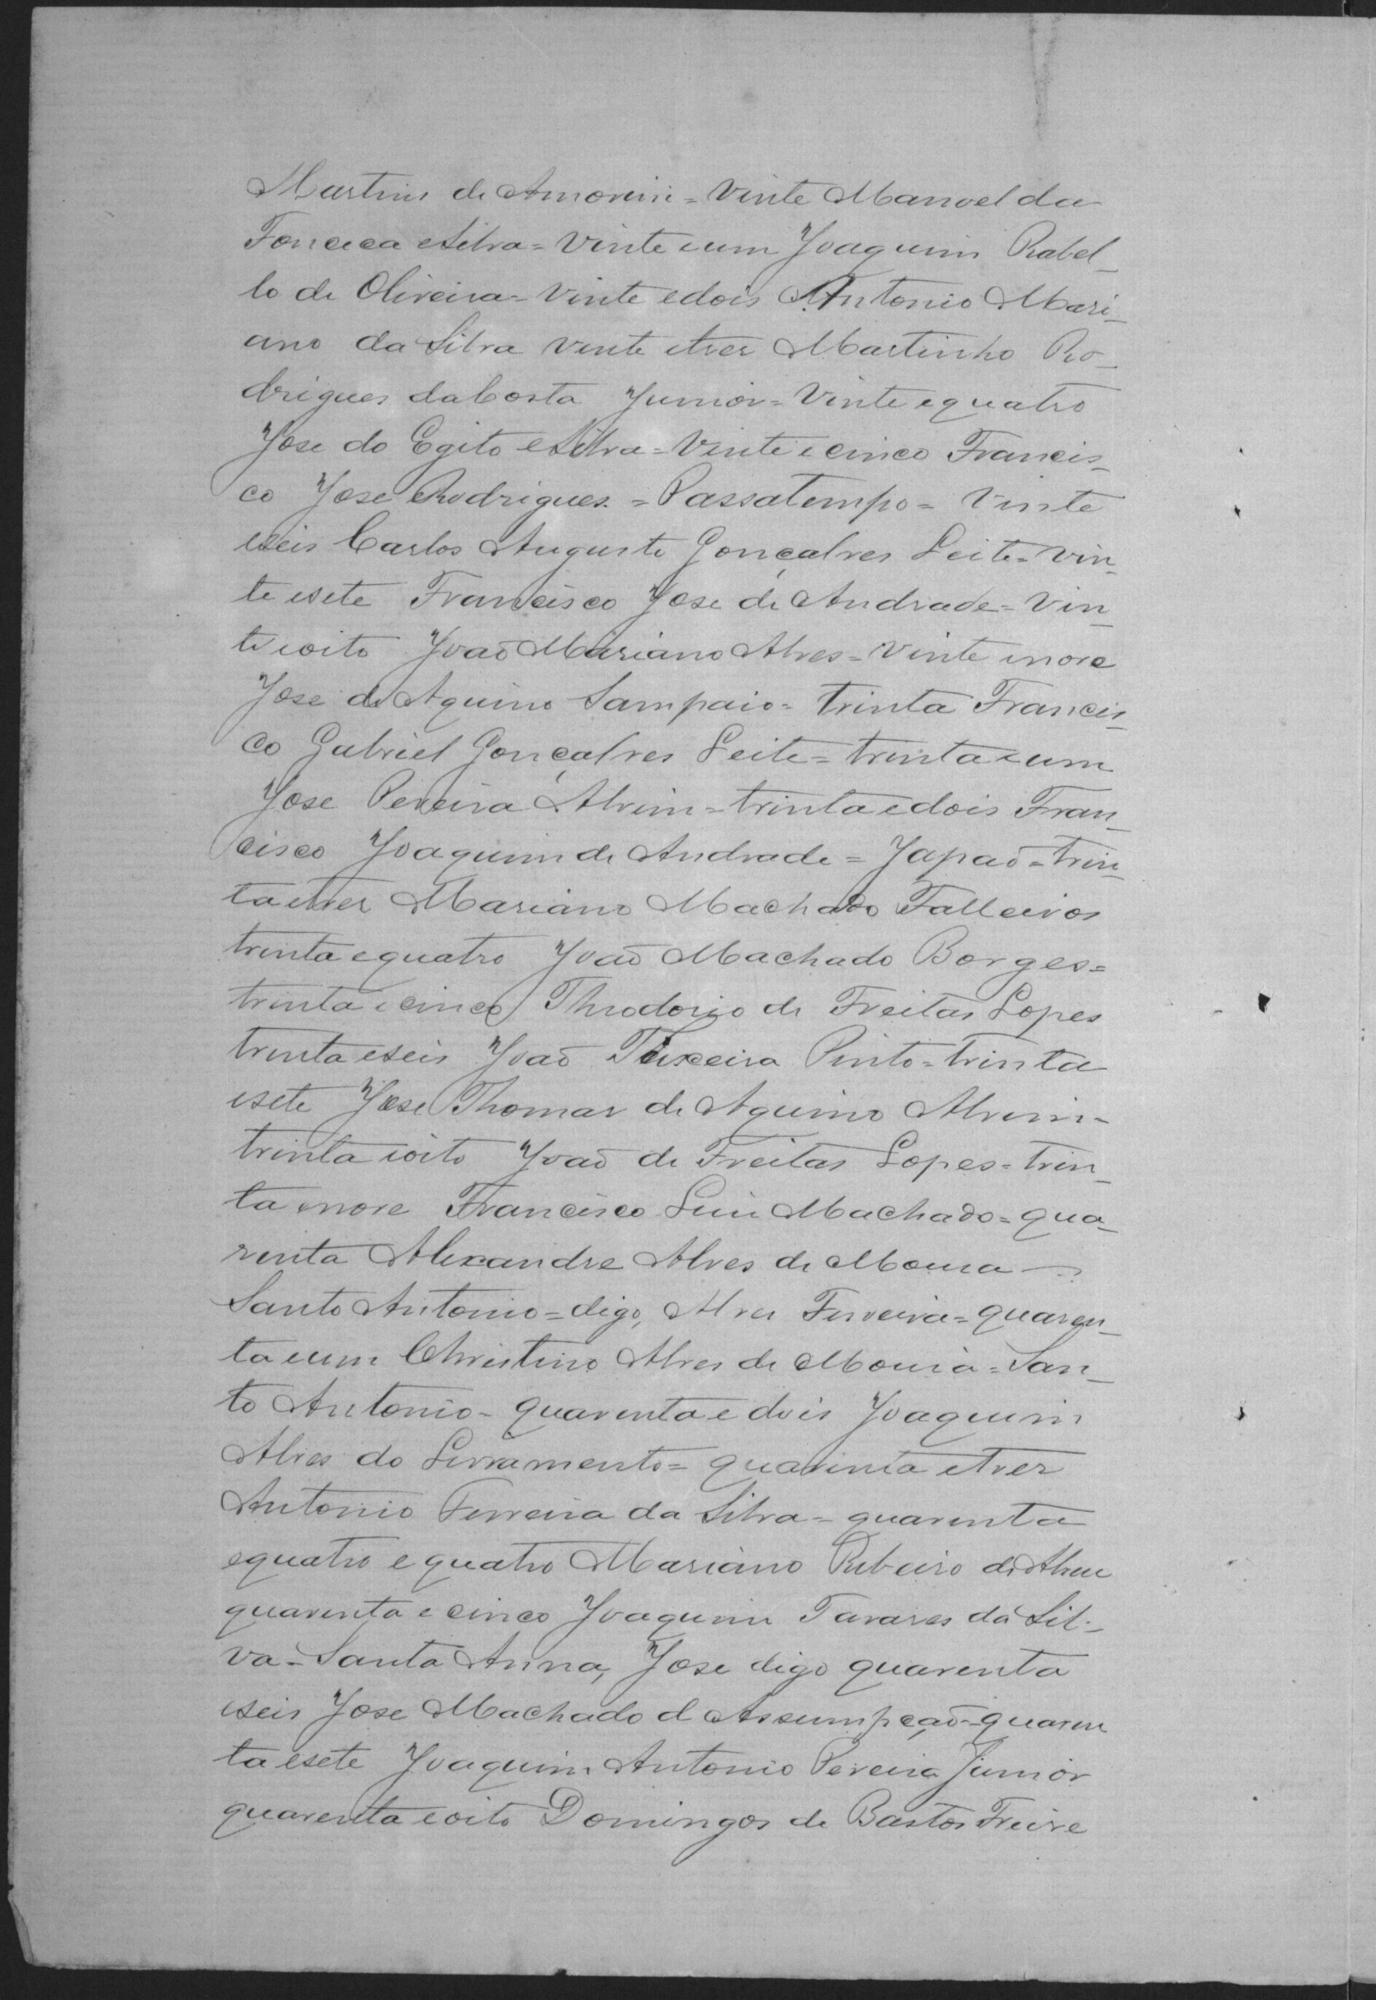 Martins de Amorim = Vinte Manoel da
Fonceca e Silva = Vinte e um Joaquim Rabel_
lo de Oliveira = Vinte e dois Antonio Mari_
ano da Silva vinte e tres Martinho Ro_
drigues da Costa Junior = Vinte e quatro
Jose do Egito e Silva = Vinte e cinco Francis_
co Jose Rodrigues = Passatempo = Vinte
e seis Carlos Augusto Gonçalves Leite = Vin_
te e sete Francisco Jose de Andrade = Vin_
te e oito João Mariano Alves = Vinte e nove
Jose de Aquino Sampaio = trinta Francis_
co Gabriel Gonçalves Leite = trinta e um
Jose Pereira Alvim = trinta e dois Fran_
cisco Joaquim de Andrade = Japaõ = trin_
ta e tres Mariano Machado Falleiros
trinta e quatro Joaõ Machado Borges =
trinta e cinco Theodorio de Freitas Lopes
trinta e seis Joaõ Teixeira Pinto = trinta
e sete Jose Thomas de Aquino Alvim =
trinta e oito Joaõ de Freitas Lopes = trin_
ta e nove Francisco Luis Machado = qua_
renta Alexandre Alves de Moura —
Santo Antonio = digo, Alves Ferreira = quaren_
ta e um Christino Alves de Moura = San_
to Antonio = quarenta e dois Joaquim
Alves do Livramento = quarenta e tres
Antonio Ferreira da Silva = quarenta
e quatro e quatro Mariano Ribeiro de Abreu
quarenta e cinco Joaquim Tavares da Sil_
va = Santa Anna, Jose digo quarenta
e seis Jose Machado d Assumpçaõ = quaren
ta e sete Joaquim Antonio Pereira Junior
quarenta e oito Domingos de Bastos Freire